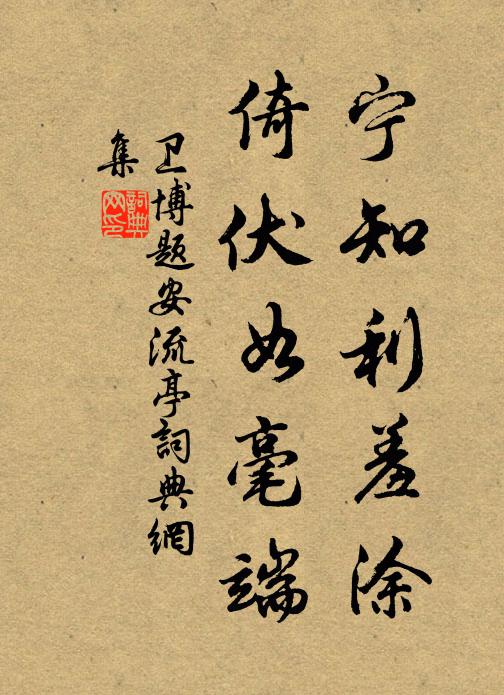 宁知利羞涂
倚伏如毫端
卫博题安流亭詞典網
集
詞典
网印